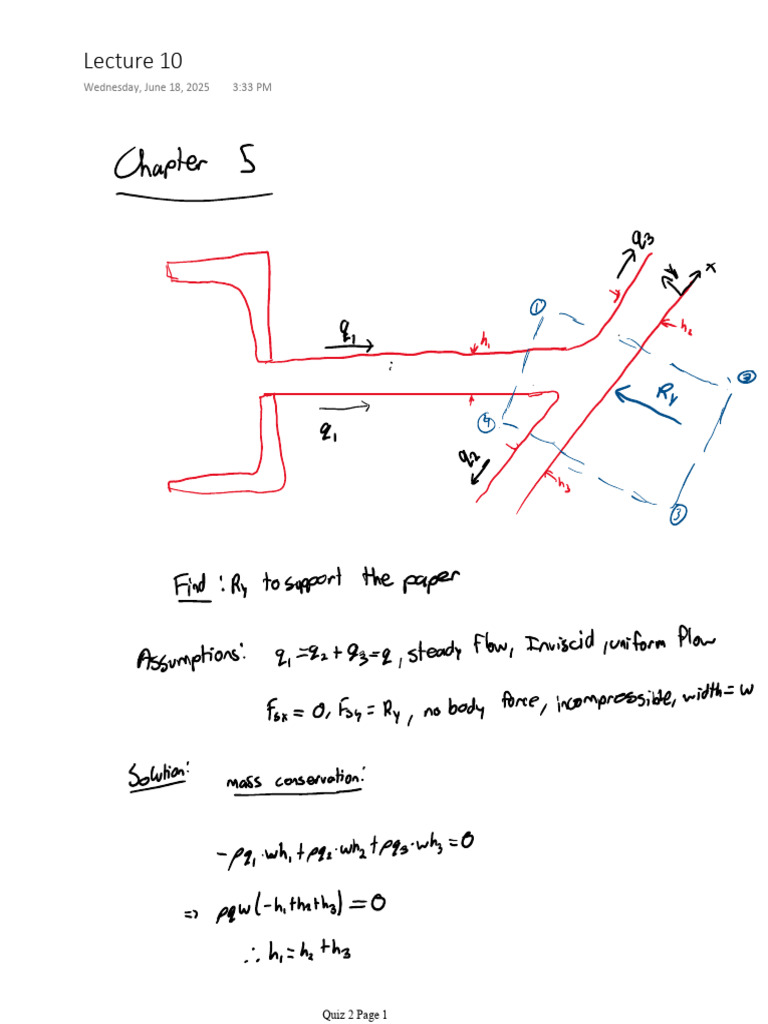 Lecture 10
Wednesday, June 18, 2025 3:33 PM
Chapter 5
q3
y x
①
q1
h1
h2
②
Ry
q1
④
q2
h3
③
Find: Ry to support the paper
Assumptions: q1=q2+q3=q, steady Flow, Inviscid, uniform Flow
Fsx = 0, Fsy = Ry, no body force, incompressible, width=w
Solution: mass conservation:
-ρq1·wh1+ρq2·wh2+ρq3·wh3=0
=> ρqw(-h1+h2+h3)=0
∴ h1=h2+h3
Quiz 2 Page 1